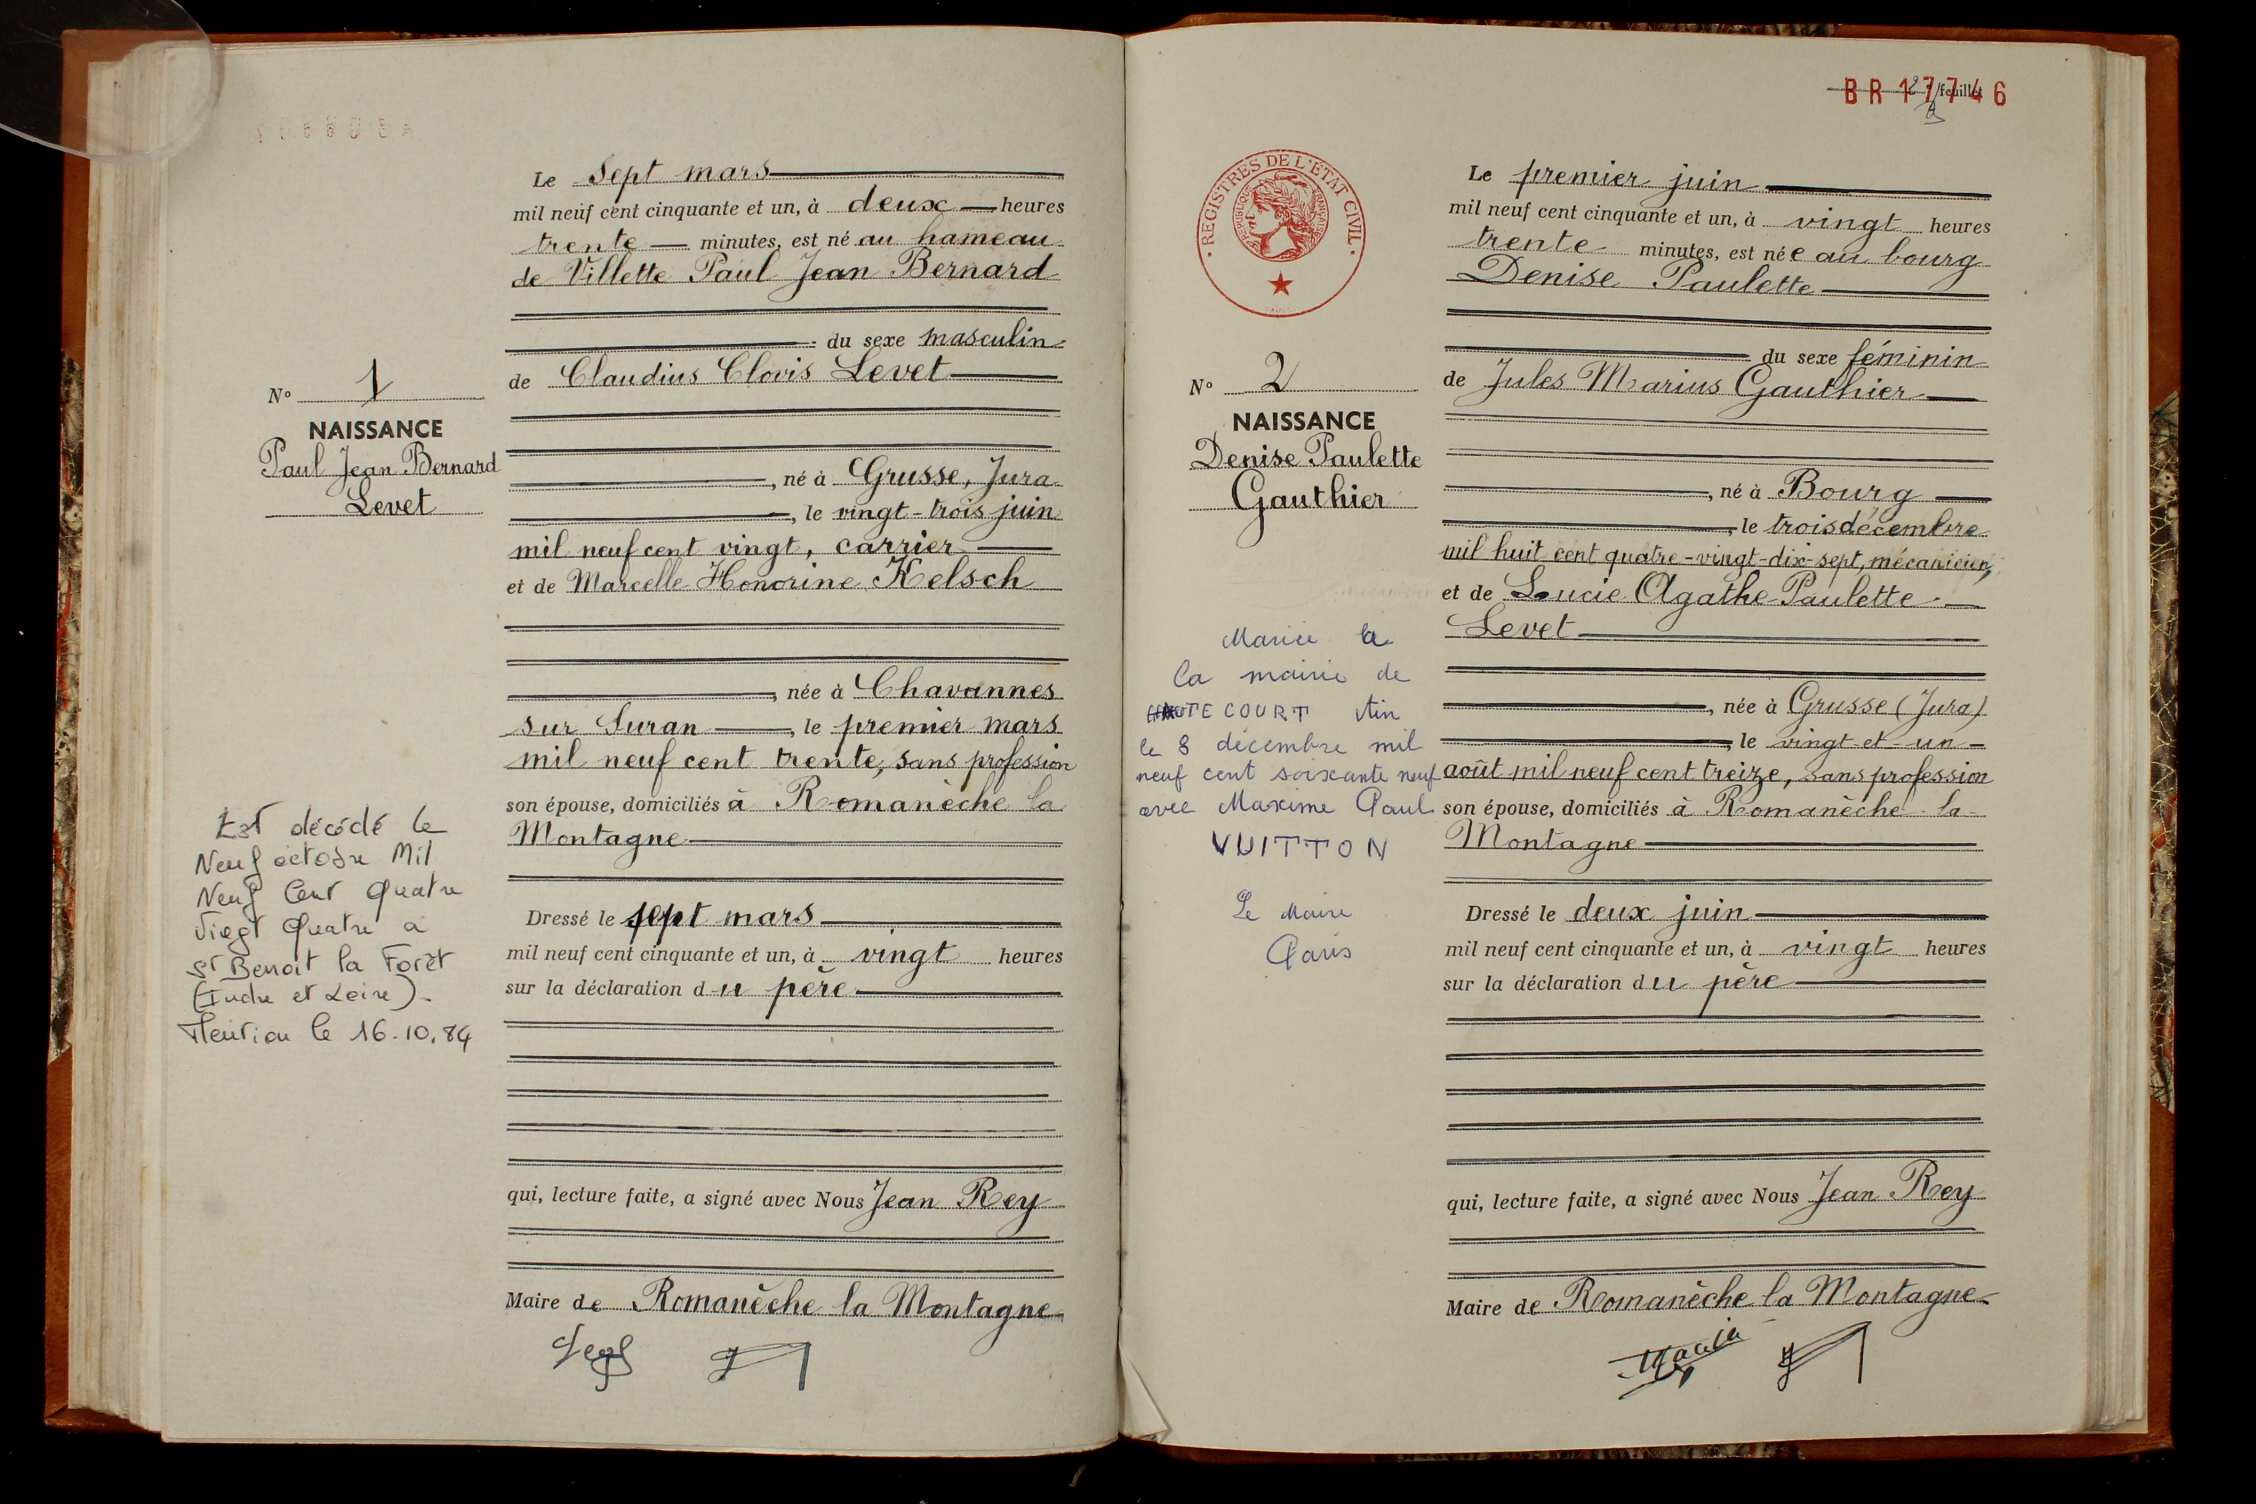 Le sept mars
mil neuf cent cinquante et un, à deux heures
trente minutes, est né au hameau
de Villette Paul Jean Bernard
du sexe masculin
de Claudius Clovis Levet
N° 1
NAISSANCE
Paul Jean Bernard
Levet
, né à Grusse, Jura
, le vingt-trois juin
mil neuf cent vingt, carrier
et de Marcelle Honorine Kelsch
, née à Chavannes
sur Suran, le premier mars
mil neuf cent trente, sans profession
son épouse, domiciliés à Romanèche la
Montagne
Est décédé le
Neuf octobre Mil
Neuf Cent Quatre
Vingt Quatre a
St Benoit la Forêt
(Indre et Loire).
le 16.10.84
Dressé le sept mars
mil neuf cent cinquante et un, à vingt heures
sur la déclaration du père
qui, lecture faite, a signé avec Nous Jean Rey
Maire de Romanèche la Montagne
BR 17746
feuillet
REGISTRES DE L'ÉTAT CIVIL
RÉPUBLIQUE FRANÇAISE
Le premier juin
mil neuf cent cinquante et un, à vingt heures
trente minutes, est née au bourg
Denise Paulette
du sexe féminin
de Jules Marius Gauthier
N° 2
NAISSANCE
Denise Paulette
Gauthier
, né à Bourg
, le trois décembre
mil huit cent quatre-vingt-dix-sept, mécanicien,
et de Lucie Agathe Paulette
Levet
, née à Grusse (Jura)
, le vingt-et-un
août mil neuf cent treize, sans profession
son épouse, domiciliés à Romanèche la
Montagne
Mariée à
la mairie de
HAUTECOURT
le 8 décembre mil
neuf cent soixante neuf
avec Maxime Paul
VUITTON
Le Maire
Dressé le deux juin
mil neuf cent cinquante et un, à vingt heures
sur la déclaration du père
qui, lecture faite, a signé avec Nous Jean Rey
Maire de Romanèche la Montagne